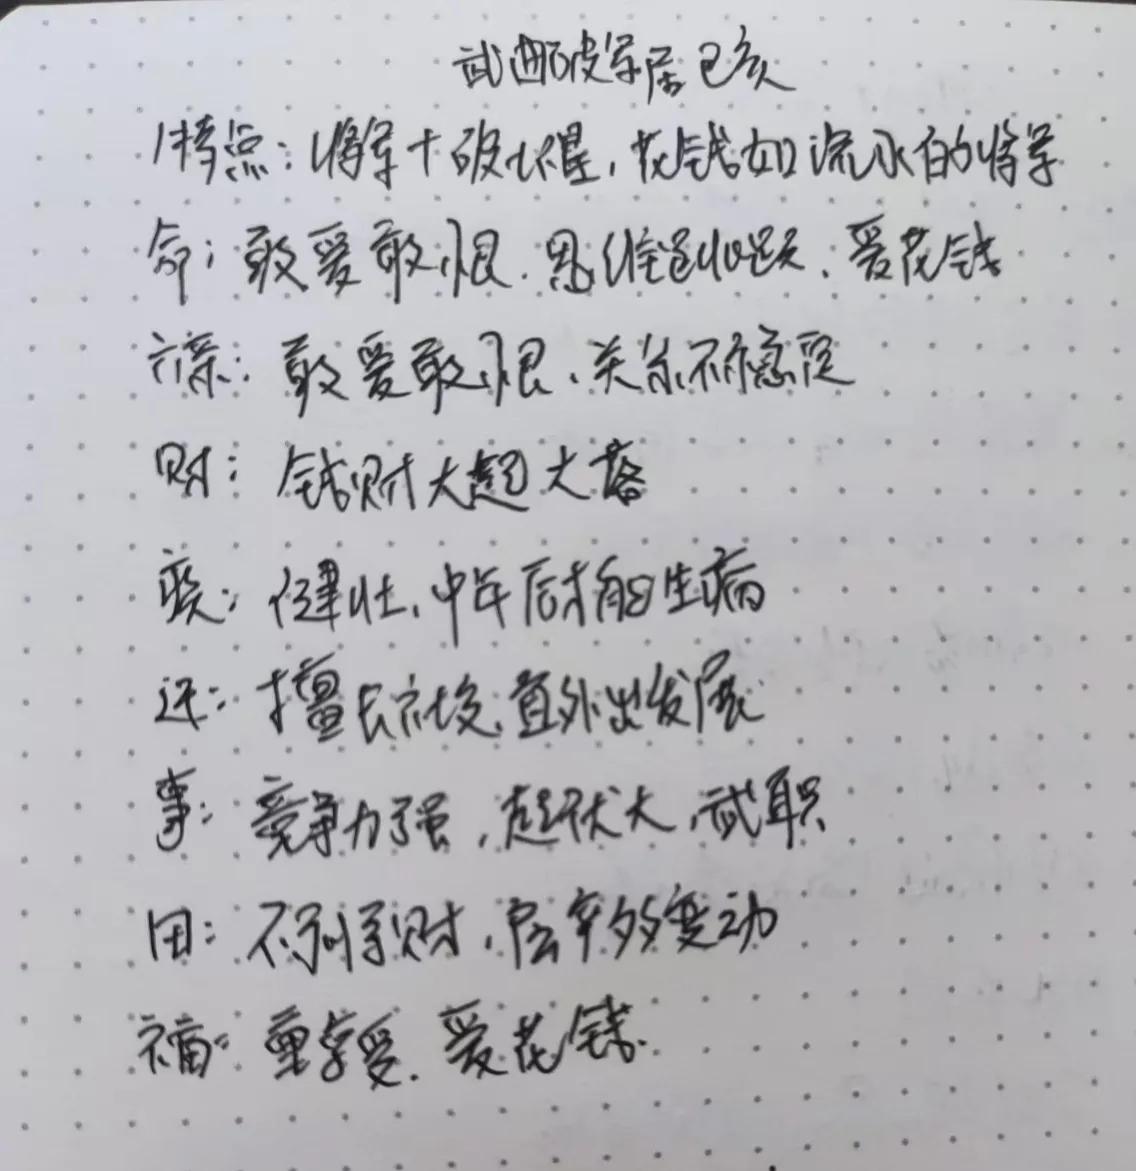 武曲破军居巳亥
特点：将军+破坏星，花钱如流水的将军
命：敢爱敢恨、思维跳跃、爱花钱
六亲：敢爱敢恨、关系不稳定
财：钱财大起大落
疾：健壮、中年后才有生病
迁：擅长社交、宜外出发展
事：竞争力强，起伏大，武职
田：不利守财，居家多变动
福：重享受、爱花钱